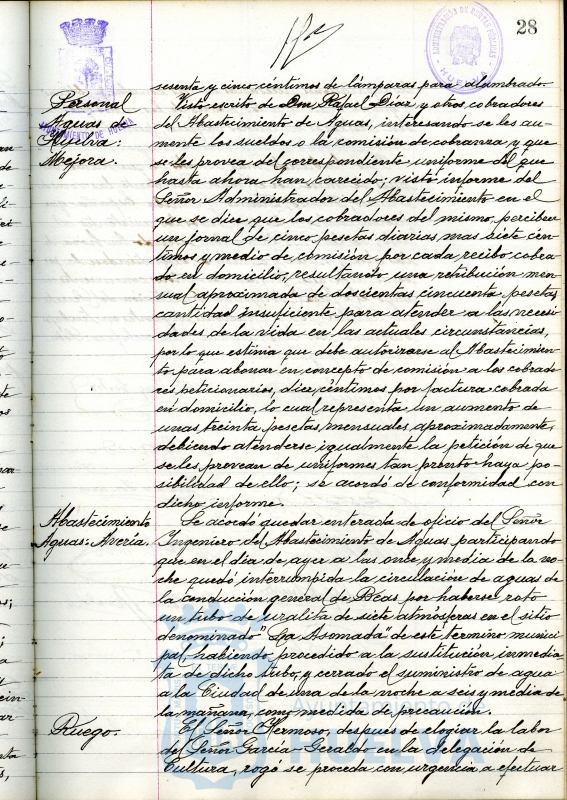 28
sesenta y cinco céntimos de lámparas para alumbrado.
Personal
Aguas de
Huelva:
Mejora.
Visto escrito de Don Rafael Díaz, y otros cobradores
del Abastecimiento de Aguas, interesando se les au-
mente los sueldos o la comisión de cobranza y que
se les provea del correspondiente uniforme del que
hasta ahora han carecido; visto informe del
Señor Administrador del Abastecimiento en el
que se dice que los cobradores del mismo, perciben
un jornal de cinco pesetas diarias, mas siete cén-
timos y medio de comisión por cada recibo cobra-
do en domicilio, resultando una retribución men-
sual aproximada de doscientas cincuenta pesetas
cantidad insuficiente para atender a las necesi-
dades de la vida en las actuales circunstancias,
por lo que estima que debe autorizarse al Abastecimien-
to para abonar en concepto de comisión a los cobrado-
res peticionarios, diez céntimos por factura cobrada
en domicilio, lo cual representa un aumento de
unas treinta pesetas mensuales aproximadamente,
debiendo atenderse igualmente la petición de que
se les provean de uniformes tan pronto haya po-
sibilidad de ello; se acordó de conformidad con
dicho informe.
Abastecimiento
Aguas: Avería.
Se acordo quedar enterada de oficio del Señor
Ingeniero del Abastecimiento de Aguas participando
que en el dia de ayer a las once y media de la no-
che quedó interrumpida la circulación de aguas de
la conducción general de Beas por haberse roto
un tubo de uralita de siete atmósferas en el sitio
denominado "La Asomada" de este termino munici-
pal, habiendo procedido a la sustitución inmedia-
ta de dicho tubo, y cerrado el suministro de agua
a la Ciudad de una de la noche a seis y media de
la mañana, como medida de precaución.
Ruego.
El Señor Hermoso, despues de elogiar la labor
del Señor Garcia-Geraldo en la delegación de
Cultura, rogó se proceda con urgencia a efectuar
AYUNTAMIENTO DE HUELVA
Ayuntamiento de
HUELVA